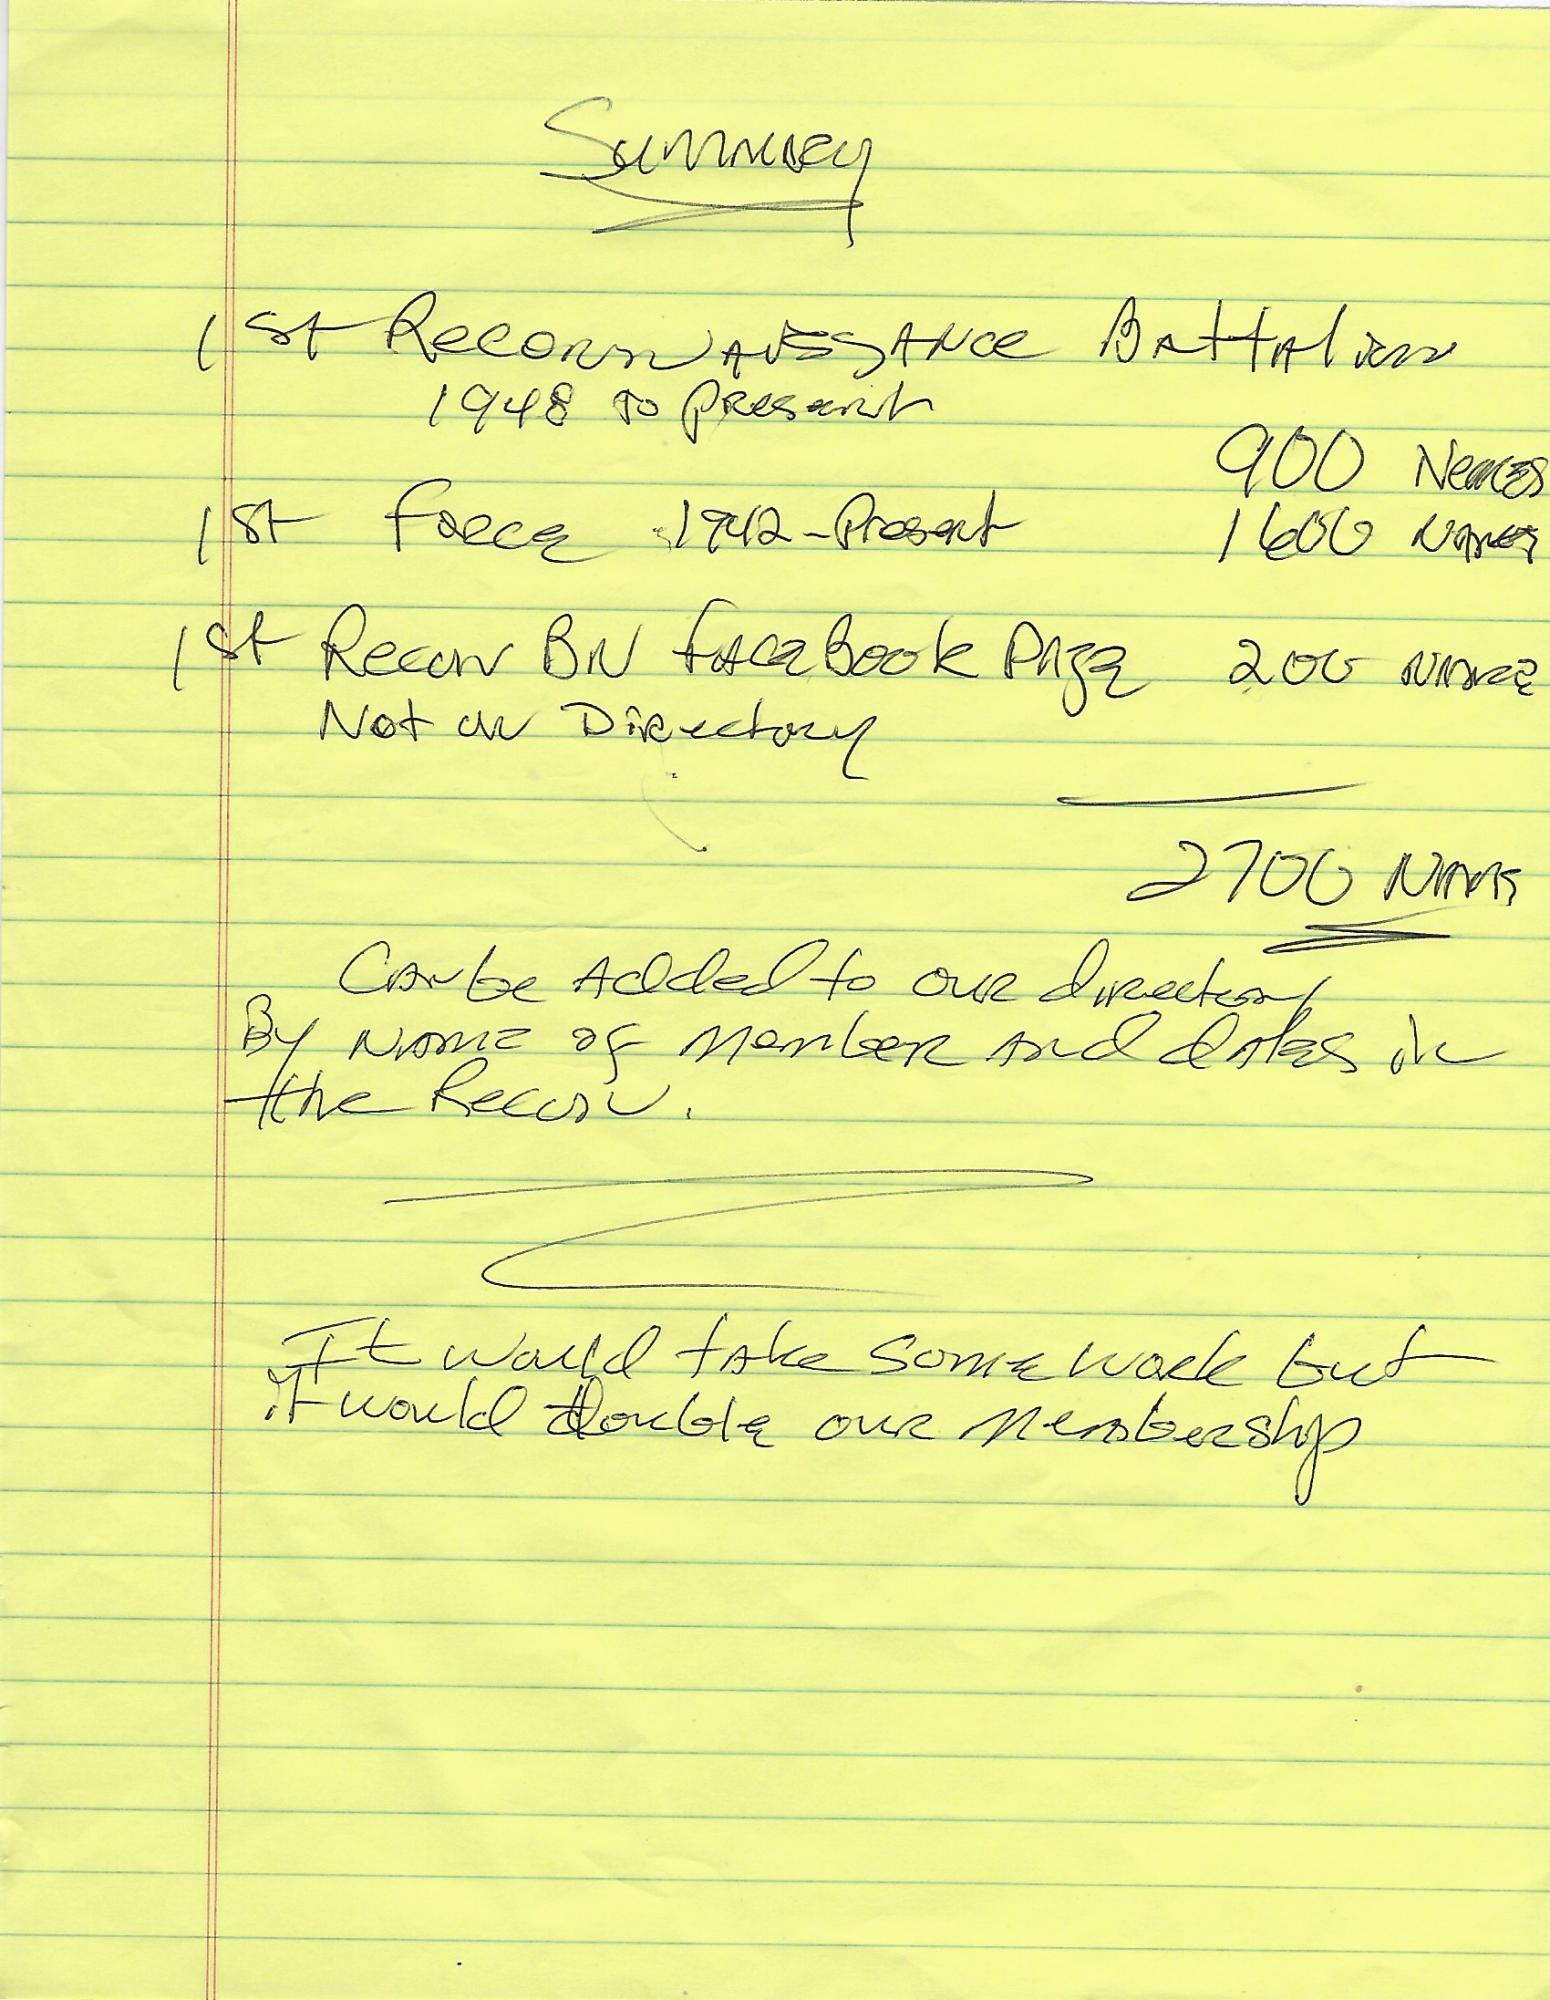 Summary
1st Reconnaissance Battalion
1948 to Present
900 Names
1st Force 1942-Present 1600 Names
1st Recon BN FaceBook Page 200 Names
Not in Directory
2700 Names
Can be Added to our directory
By Name of Member and dates in
the Recon.
It would take some work but
it would double our Membership